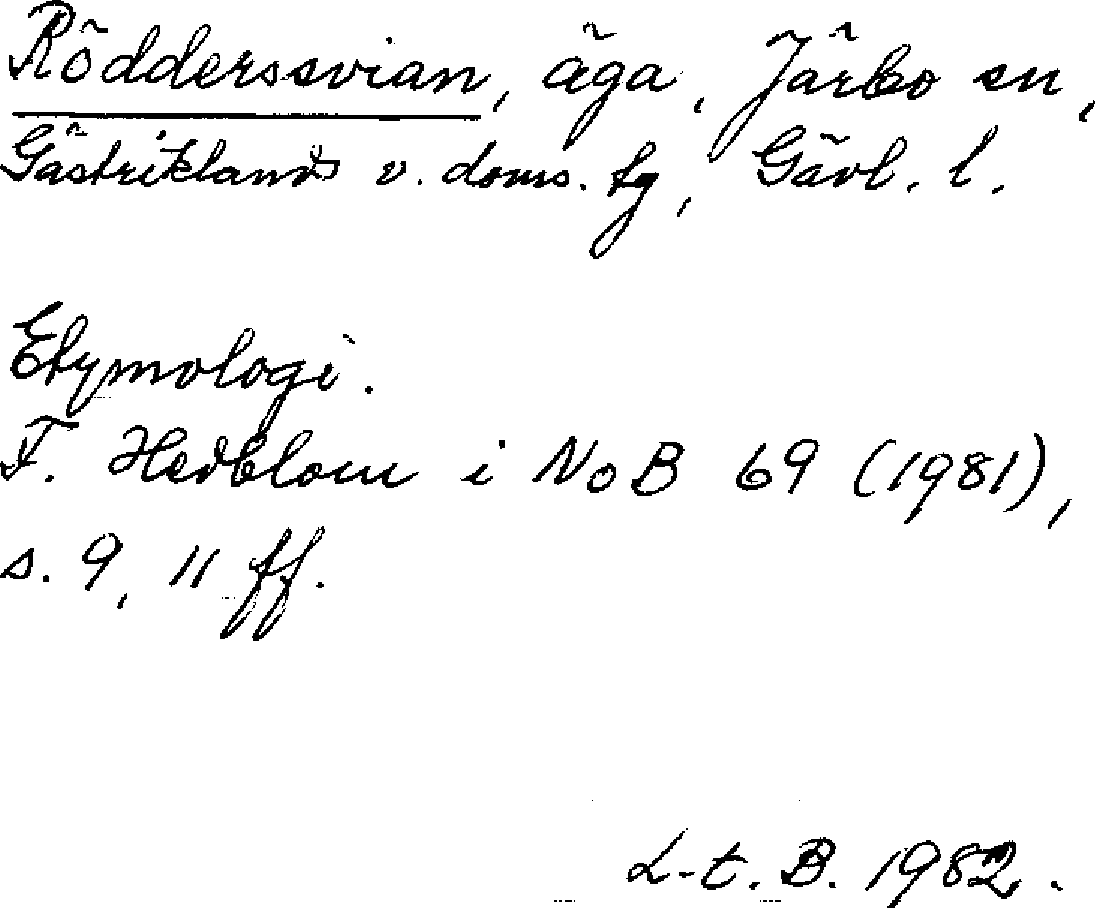 Rödderssvian, äga, Järbo sn,
Gästriklands v. doms. tg, Gävl. l.
Etymologi.
F. Hedblom i NoB 69 (1981),
s. 9, 11 ff.
L-t. B. 1982.